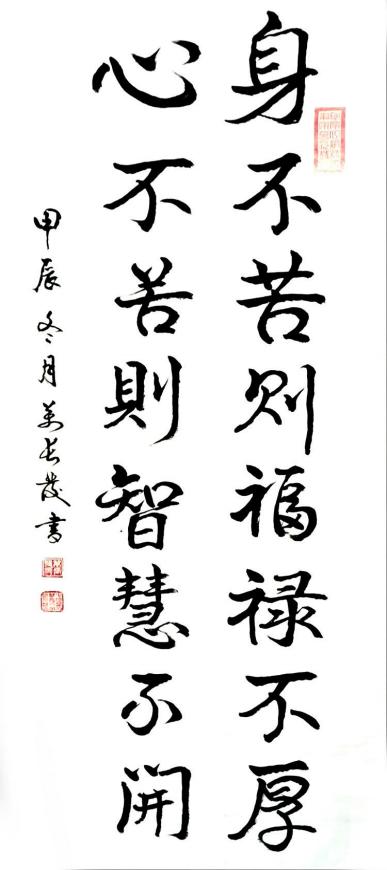 身不苦则福禄不厚
心不苦則智慧不開
甲辰冬月萬长發書